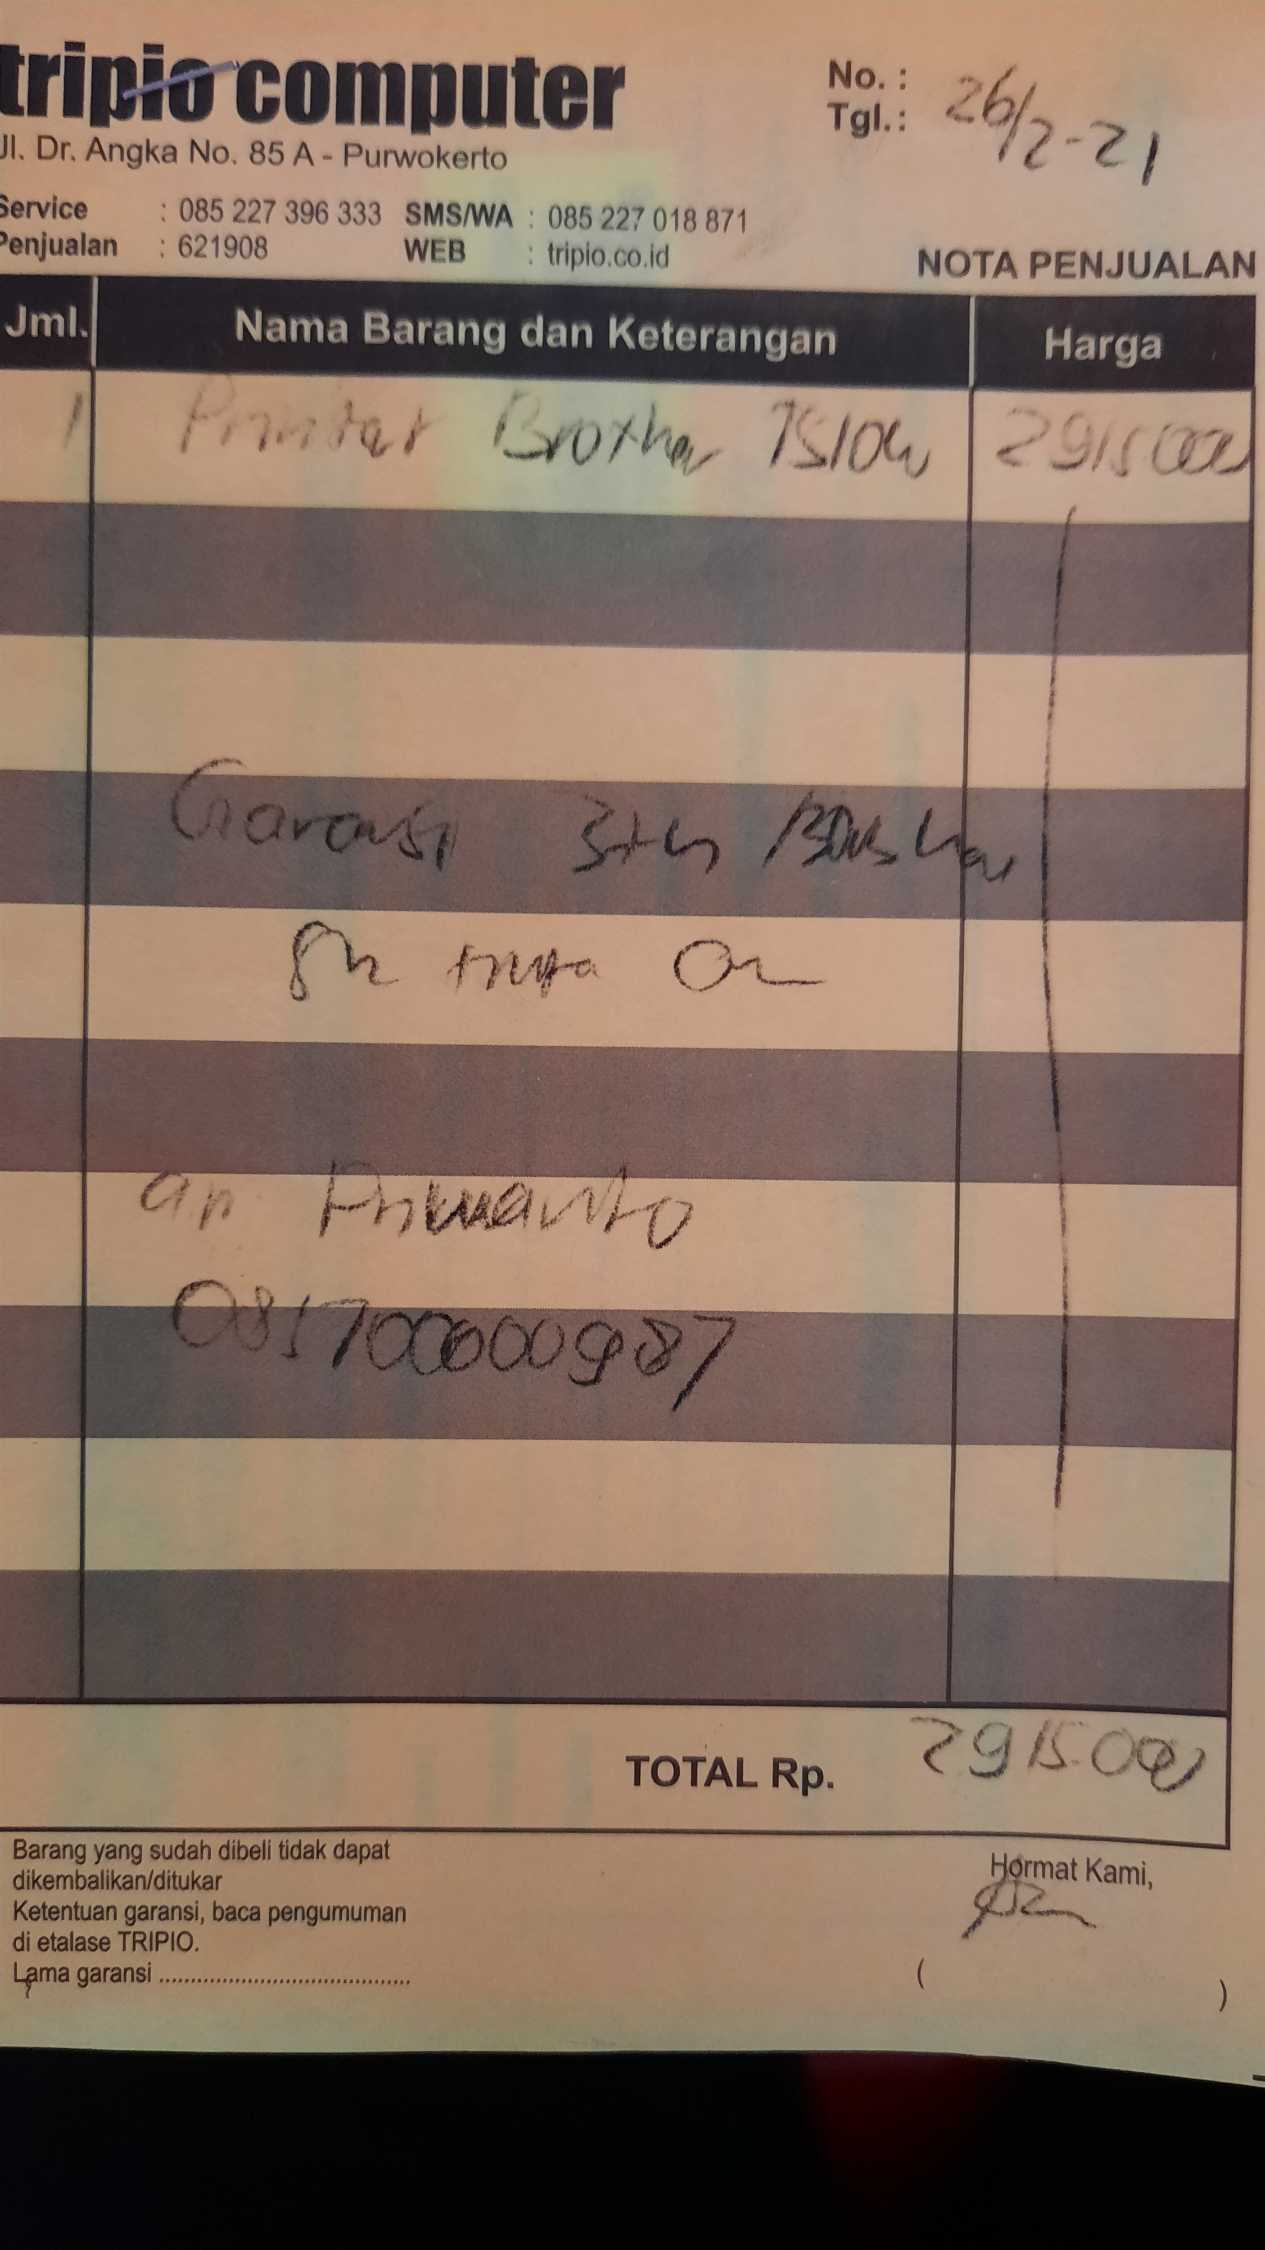 tripio computer
Jl. Dr. Angka No. 85 A - Purwokerto
Service : 085 227 396 333 SMS/WA : 085 227 018 871
Penjualan : 621908 WEB : tripio.co.id
No. :
Tgl. : 26/2-21
NOTA PENJUALAN
Jml. Nama Barang dan Keterangan Harga
1 Printer Brother 2915000
Garansi 3th
an
TOTAL Rp. 2915.000
Barang yang sudah dibeli tidak dapat
dikembalikan/ditukar
Ketentuan garansi, baca pengumuman
di etalase TRIPIO.
Lama garansi ........................................
Hormat Kami,
( )